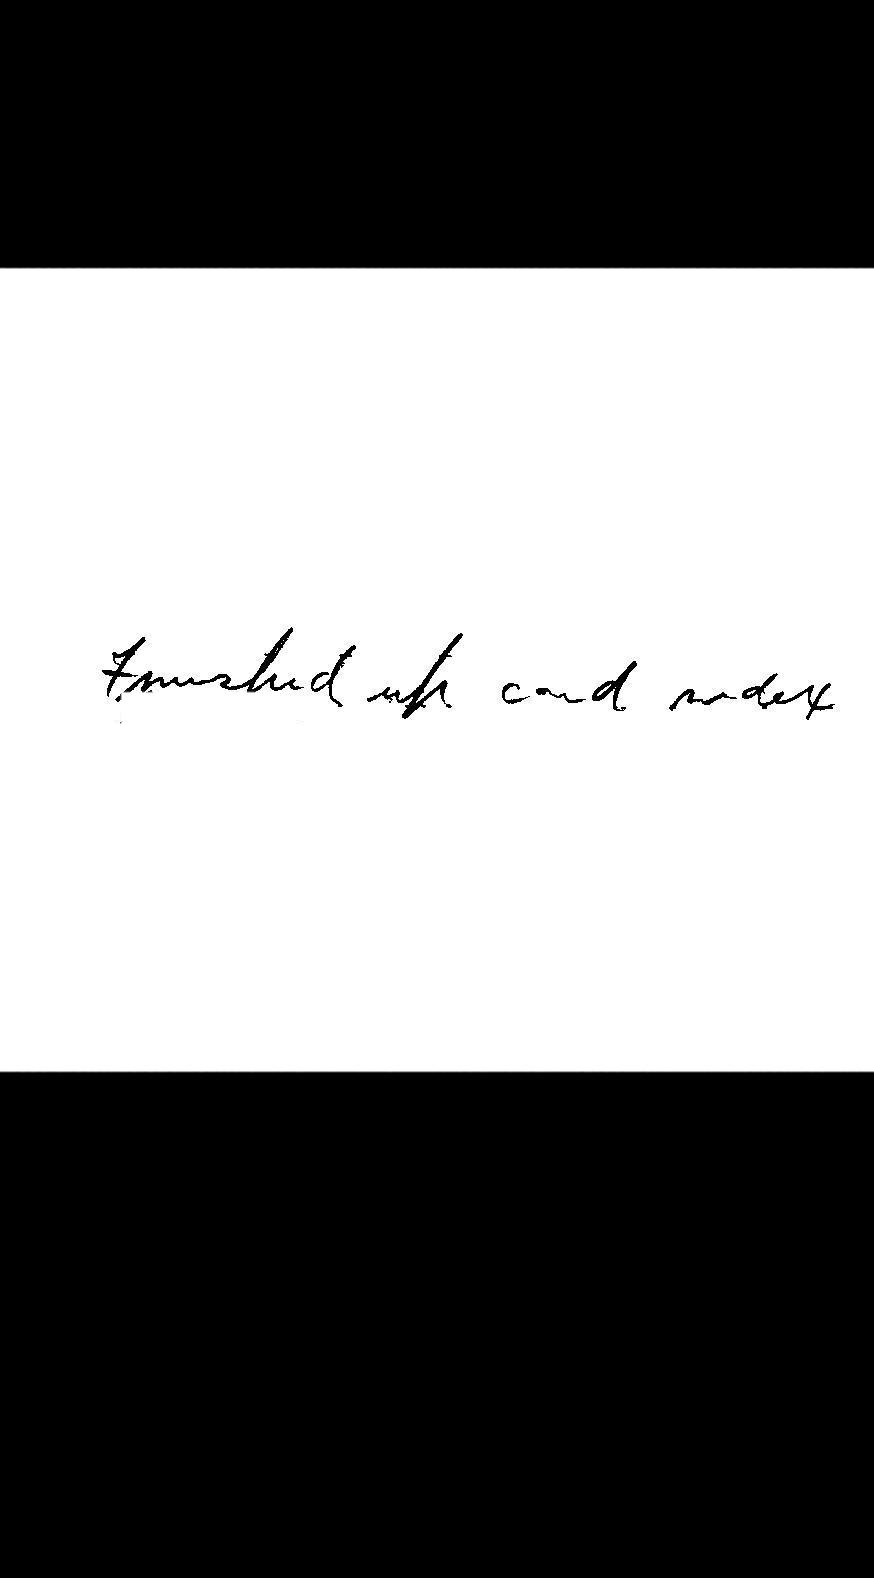 Finished up card index